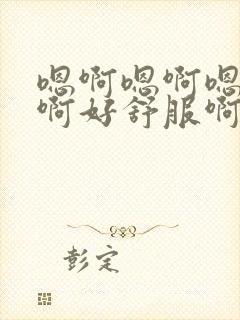 嗯啊嗯啊嗯
啊好舒服啊
彭定